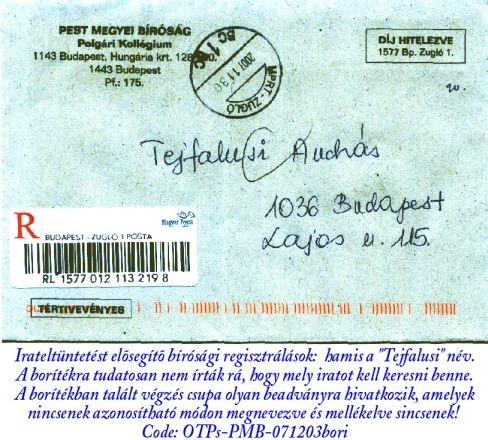 PEST MEGYEI BÍRÓSÁG
Polgári Kollégium
1143 Budapest, Hungária krt. 128-130.
1443 Budapest
Pf.: 175.
BC 1 BC
2007 11 30
MPRT - ZUGLÓ
DÍJ HITELEZVE
1577 Bp. Zugló 1.
Tejfalusi András
1036 Budapest
Lajos u. 115.
R
Magyar Posta
BUDAPEST - ZUGLÓ 1 POSTA
RL 1577 012 113 219 8
TÉRTIVEVÉNYES
Irateltüntetést elősegítő bírósági regisztrálások: hamis a "Tejfalusi" név.
A borítékra tudatosan nem írták rá, hogy mely iratot kell keresni benne.
A borítékban talált végzés csupa olyan beadványra hivatkozik, amelyek
nincsenek azonosítható módon megnevezve és mellékelve sincsenek!
Code: OTPs-PMB-071203bori